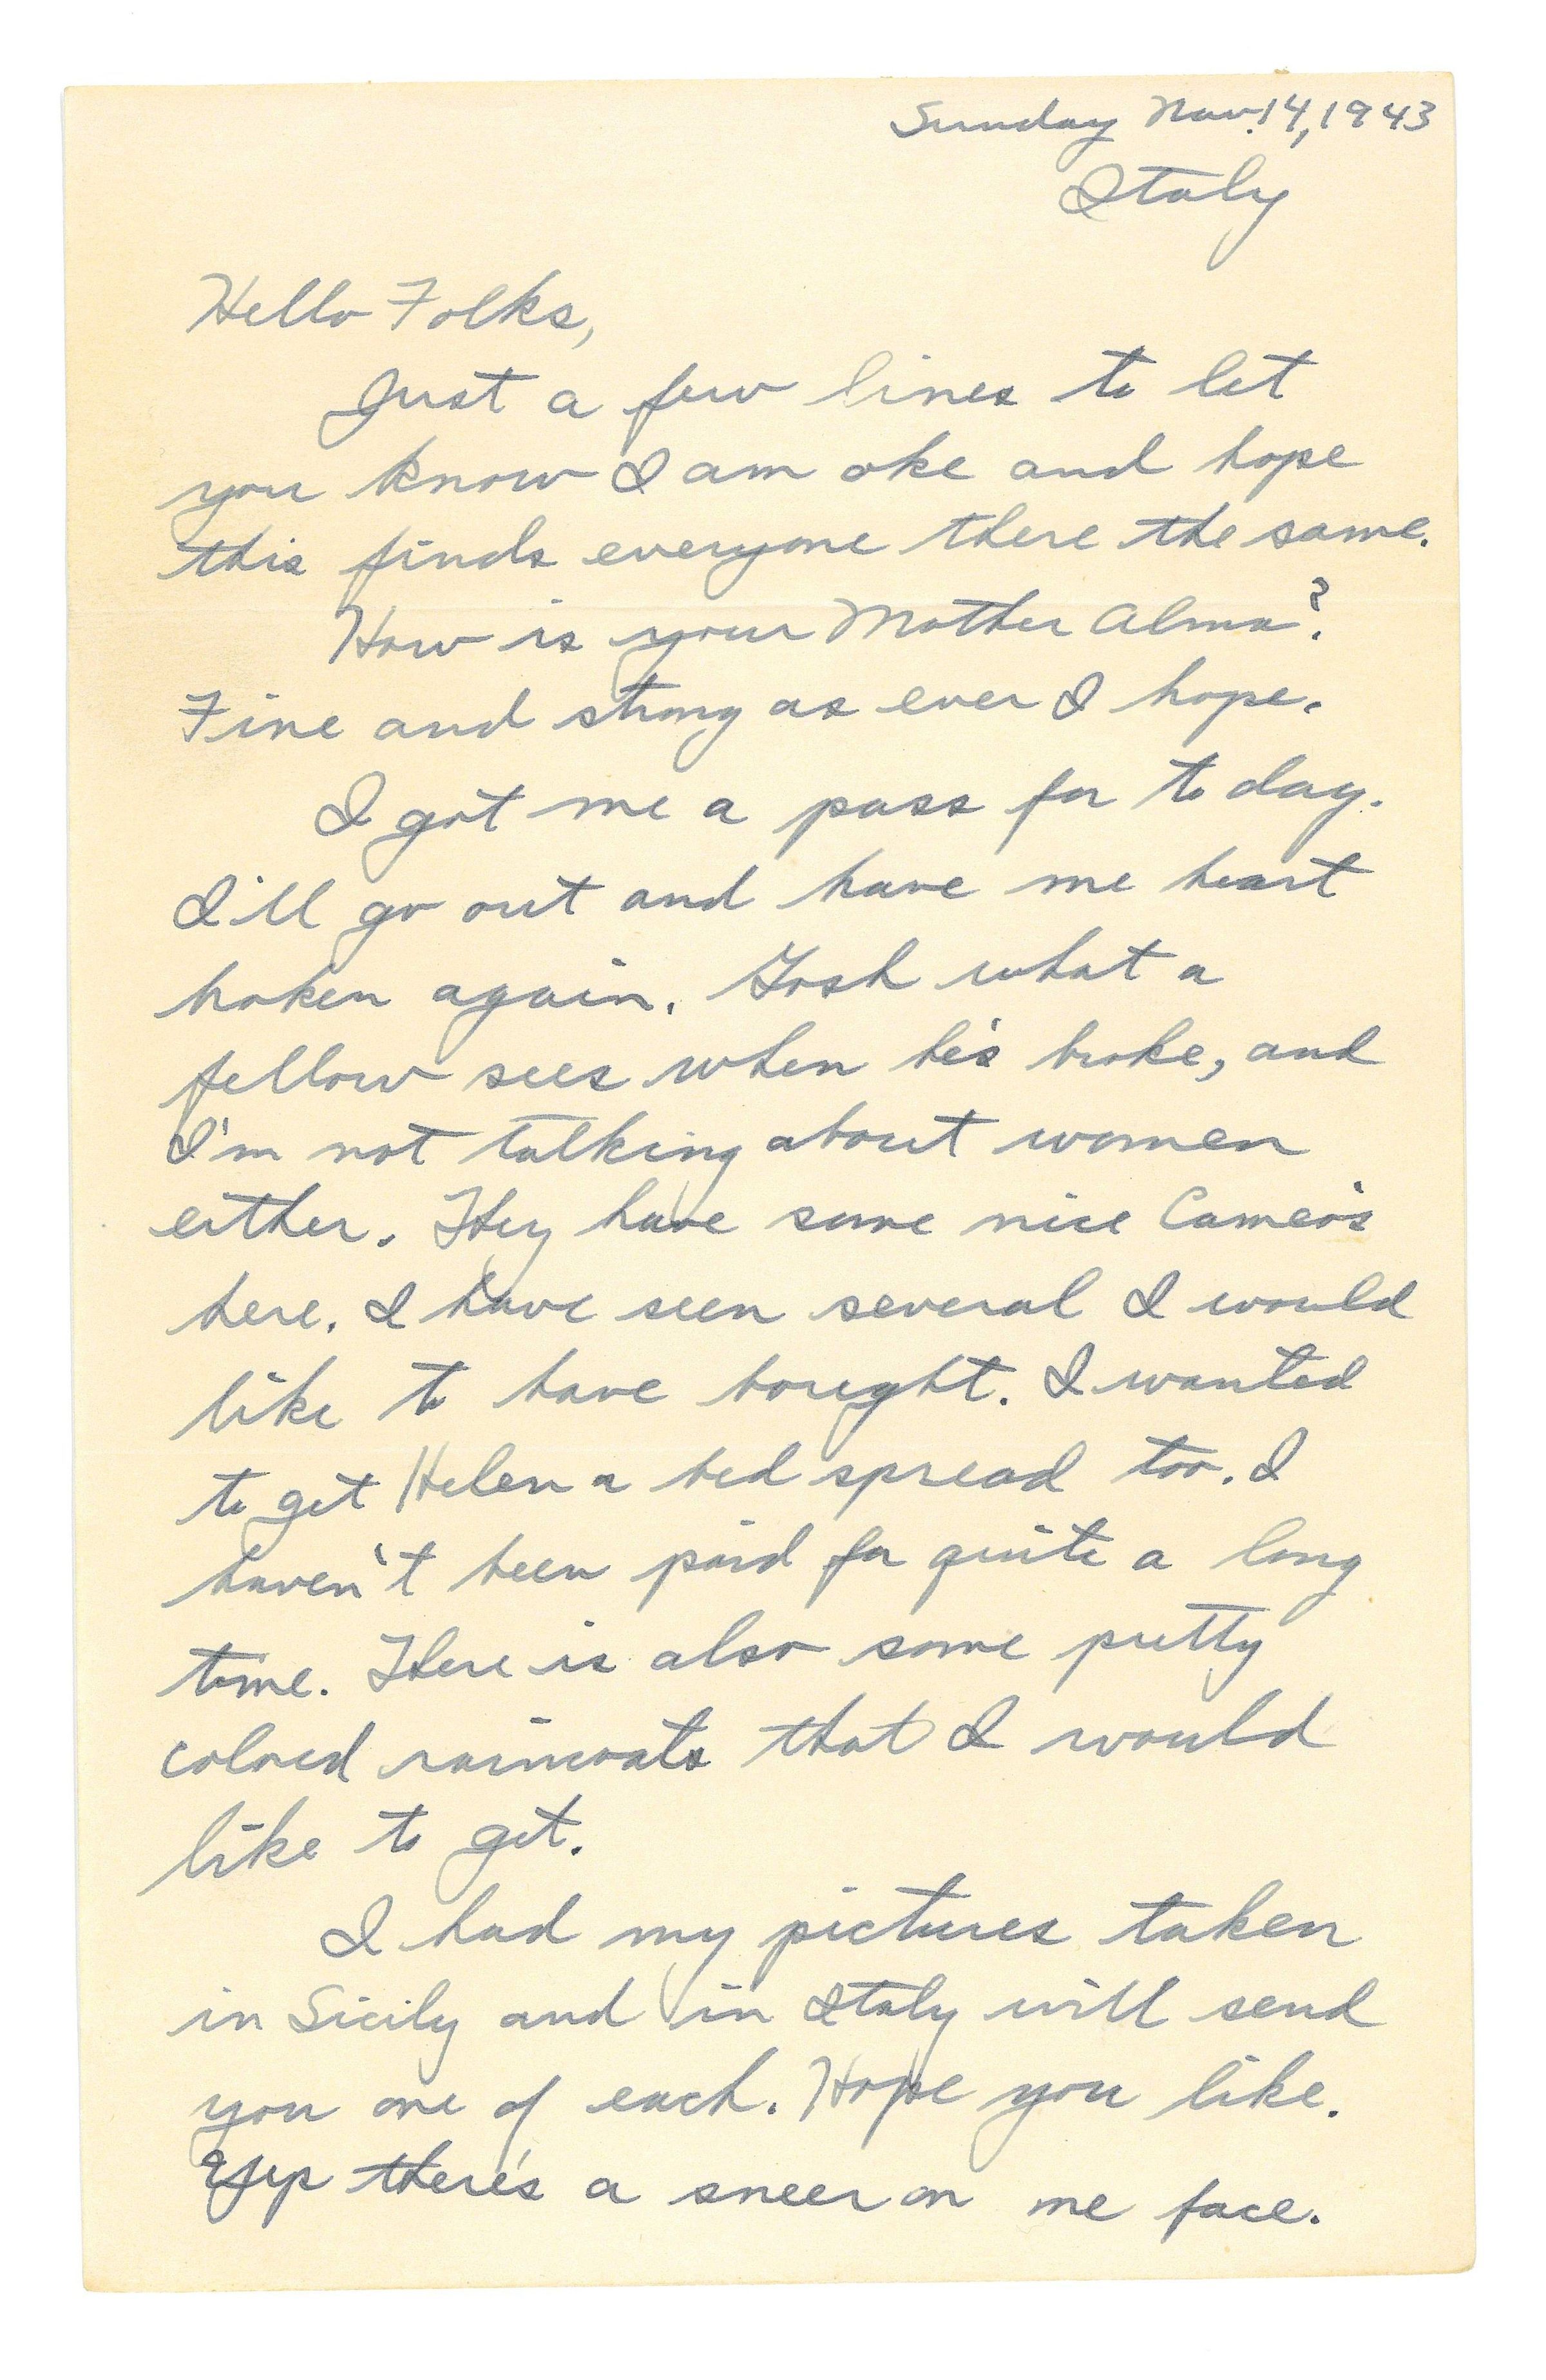 Sunday Nov. 14, 1943
Italy
Hello Folks,
Just a few lines to let
you know I am oke and hope
this finds everyone there the same.
How is your Mother Alma?
Fine and strong as ever I hope.
I got me a pass for to day.
I'll go out and have me heart
broken again. Gosh what a
fellow sees when he's broke, and
I'm not talking about women
either. They have some nice Cameo's
here. I have seen several I would
like to have bought. I wanted
to get Helen a bed spread too. I
haven't been paid for quite a long
time. There is also some pretty
colored raincoats that I would
like to get.
I had my pictures taken
in Sicily and in Italy will send
you one of each. Hope you like.
Yep there's a sneer on me face.